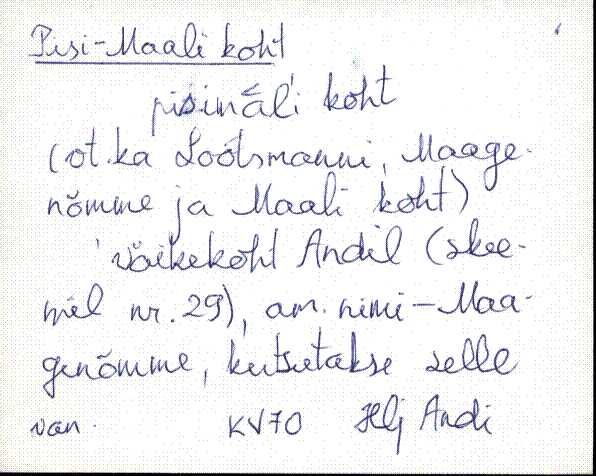 Pisi-Maali koht
pisinäl'i koht
(ot. ka Lootsmanni, Maage-
nõmme ja Maali koht)
väikekoht Andil (skee-
mil nr. 29), am. nimi - Maa-
genõmme, kutsutakse selle
van. KV70 Hlj Andi